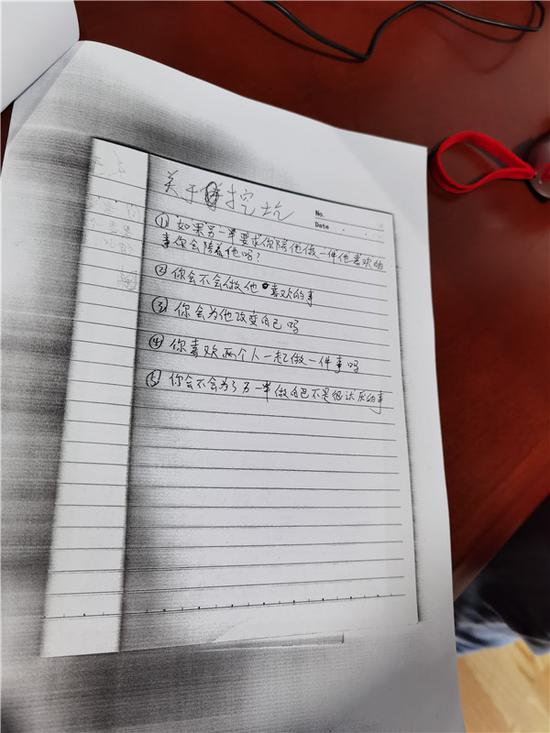 关于挖坑
No.
Date
① 如果另一半要求你陪他做一件他喜欢的
事你会陪着他吗?
② 你会不会做他喜欢的事
③ 你会为他改变自己吗
④ 你喜欢两个人一起做一件事吗
⑤ 你会不会为了另一半做自己不是很讨厌的事